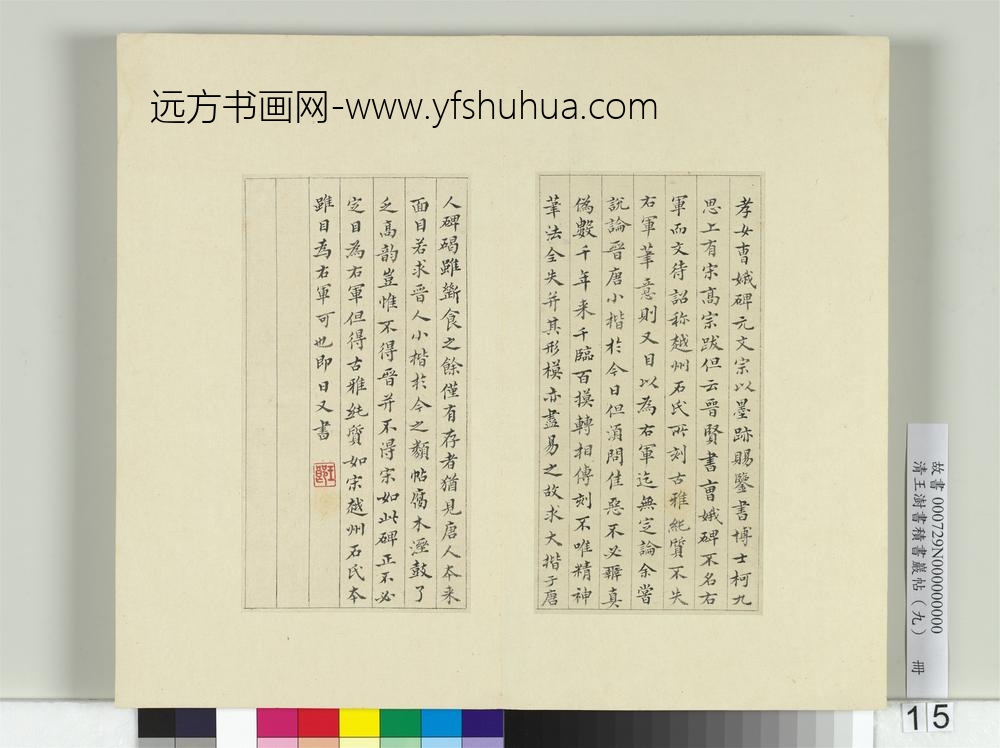 远方书画网-www.yfshuhua.com
孝女曺娥碑元文宗以墨跡賜鑒書博士柯九
思上有宋髙宗跋但云晉賢書曺娥碑不名右
軍而文待詔称越州石氏所刻古雅純質不失
右軍筆意則又目以為右軍迄無定論余嘗
說論晉唐小楷於今日但須問佳惡不必辨真
偽數千年来千臨百摸轉相傳刻不唯精神
筆法全失并其形模亦盡易之故求大楷于唐
人碑碣雖斷食之餘僅有存者猶見唐人本来
面目若求晉人小楷於今之類帖腐木溼鼓了
乏髙韵豈惟不得晉并不得宋如此碑正不必
定目為右軍但得古雅純質如宋越州石氏本
雖目為右軍可也即日又書
故書 000729N000000000
清王澍書積書巖帖（九） 冊
15